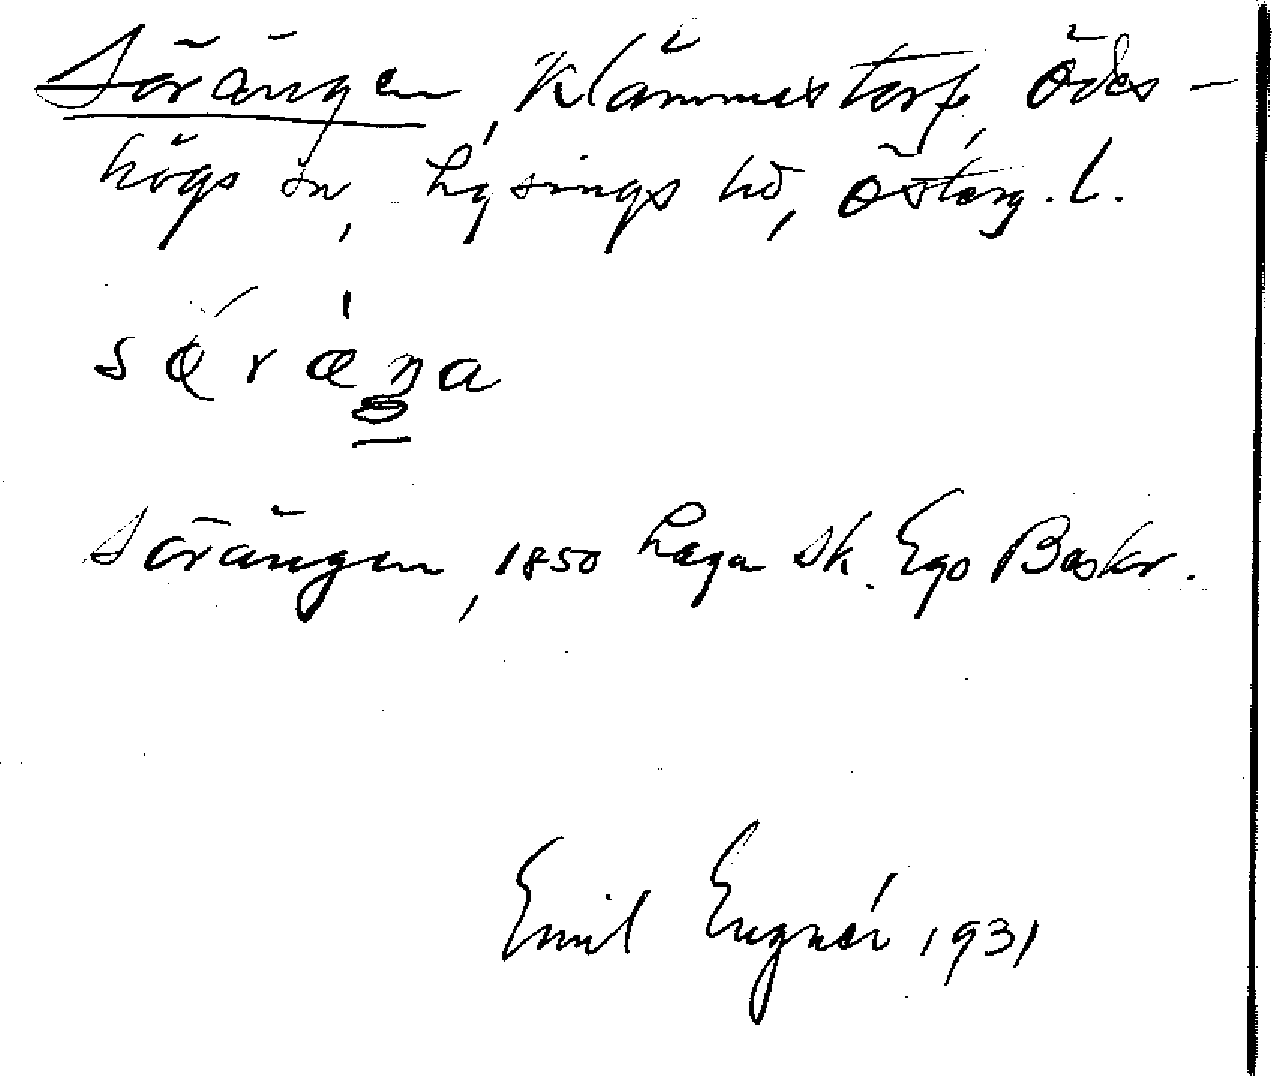 Sörängen, Klämmestorp, Ödes-
högs sn, Lysings hd, Österg. l.
Sörängen, 1850 Laga sk. Ego Beskr.
Emil Engnér 1931